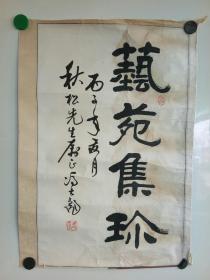 藝苑集珍
丙子年夏月
秋松先生属正